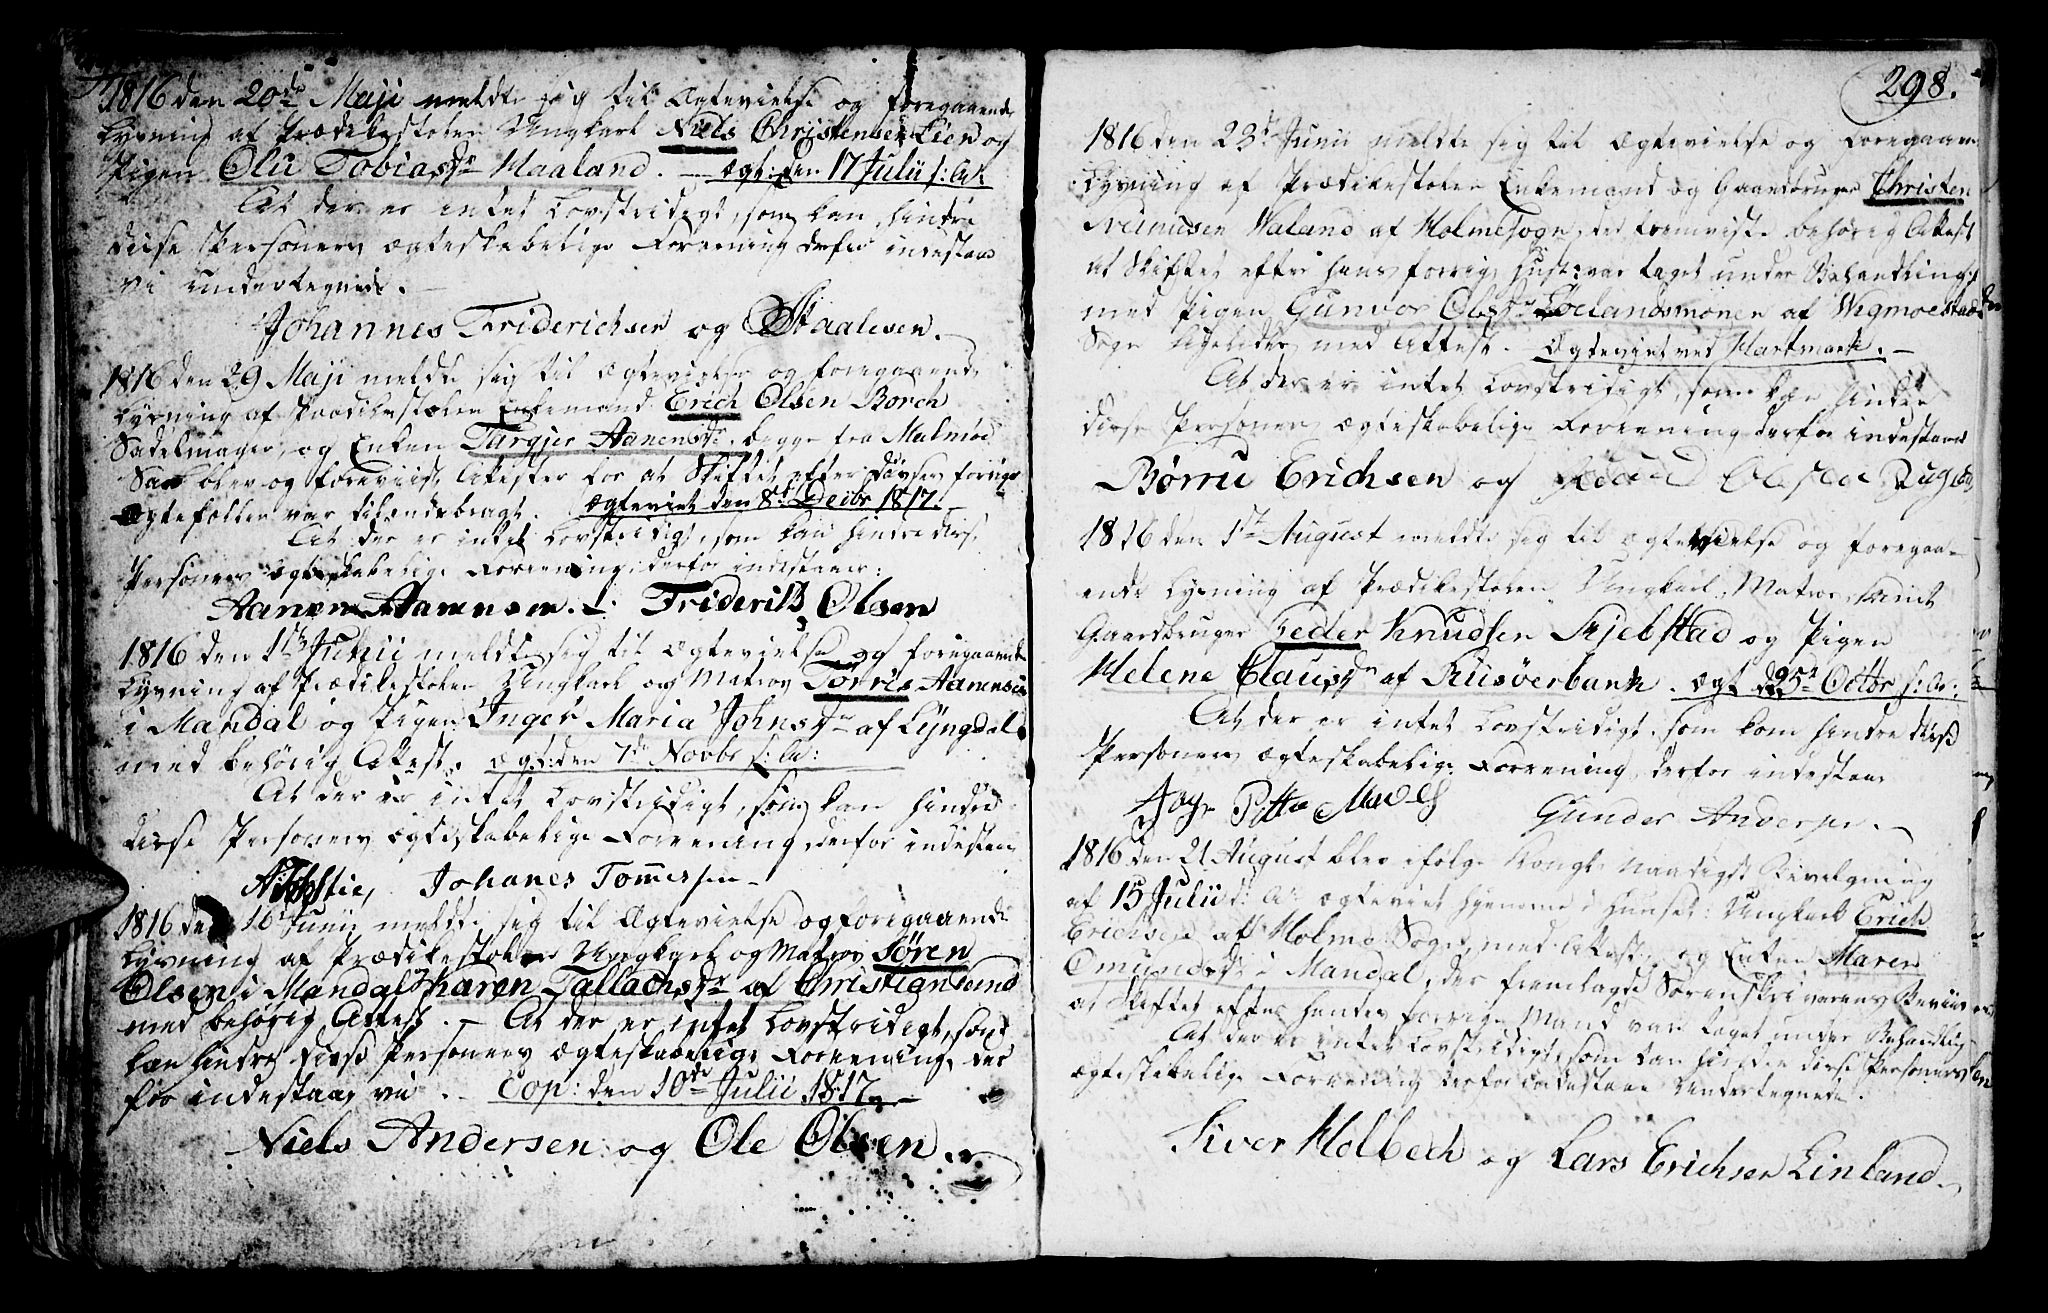 1816 den 20de Maji meldte sig til Ægtevielse og foregaaende
Lysning af Prædikestolen Ungkarl Niels Christensen Lien og
Pigen Olu Tobiasdr Haaland. – Ægt: den 17 Julii s: A:
At der er intet Lovstridigt, som kan hindre
disse Personers ægteskabelige Foreening derfor indestaae
vi undertegnede. –
Johannes Friderichsen og Staalesen.
1816 den 29 Maji meldte sig til Ægtevielse og foregaaende
Lysning af Prædikestolen Enkemand Erich Olsen Borch
Sadelmager, og Enken Targjer Aanensdr. begge fra Malmøe
blev og foreviist Attester for at Skiftet efter forrige
Ægtefæller var tilendebragt. Ægteviet den 8de Decbr 1817.
At der er intet Lovstridigt, som kan hindre disse
Personers ægteskabelige Foreening, derfor indestaaer:
Aanen Aanensen. – Friderik Olsen
1816 den 1ste Junii meldte sig til Ægtevielse og foregaaende
Lysning af Prædikestolen Ungkarl og Matros Tørris Aanensen
i Mandal og Pigen Inger Maria Johnsdr af Lyngdal
med behörig Attest. Ægt: den 7de Novbr s: A:
At der er intet Lovstridigt, som kan hindre
disse Personers ægteskabelige Foreening, derfor indestaae
Johanes Tømersen
1816 den 16 Junii meldte sig til Ægtevielse og foregaaende
Lysning af Prædikestolen Ungkarl og Matros Søren
Olsen i Mandal Karen Tallachsdr af Christiansund
med behörig Attest. – At der er intet Lovstridigt, som
kan hindre disse Personers Ægteskabelige Foreening, der
for indestaaer vi. – Cop: den 10de Julii 1817. –
Niels Andersen og Ole Olsen.
298.
1816 den 23de Junii meldte sig til Ægtevielse og foregaaende
Lysning af Prædikestolen Enkemand og Gaardbruger Christen
Valand af Holmesogn, der fremviste behørig Attest
at Skiftet efter hans forrige Hustr: var taget under Behandling;
med Pigen Gunvor Olsdr Loelandsmonen af Wigmoestad
Sogn ligeledes med Attest. Ægteviet ved Hartmark. –
At der er intet Lovstridigt, som kan hindre
disse Personers ægteskabelige Foreening derfor indestaaer
Børru Erichsen og Olsen
1816 den 1ste August meldte sig til Ægtevielse og foregaa-
ende Lysning af Prædikestolen Ungkarl, Matros samt
Gaardbruger Peder Knudsen Skjebstad og Pigen
Helene Clausdr af Risöerbank. Ægt d 25de Octbr s: A:
At der er intet Lovstridigt, som kan hindre disse
Personers ægteskabelige Foreening, derfor indestaaer
Gunder Andersen. –
1816 den 21 August blev ifølge Kongl: Naadigst Bevilgning
af 15 Julii d: A: ægteviet hjemme i Huuset: Ungkarl Erich
Erichsen af Holme Sogn, med Attest, og Enken Maren
Omundsdr i Mandal, der fremlagde Sorenskriverens Beviis
at Skiftet efter hendes forrige Mand var taget under Behandling
At der er intet Lovstridigt, som kan hindre disse Personers
ægteskabelige Foreening derfor indestaae Undertegnede.
Siver Holbech og Lars Erichsen Linland.